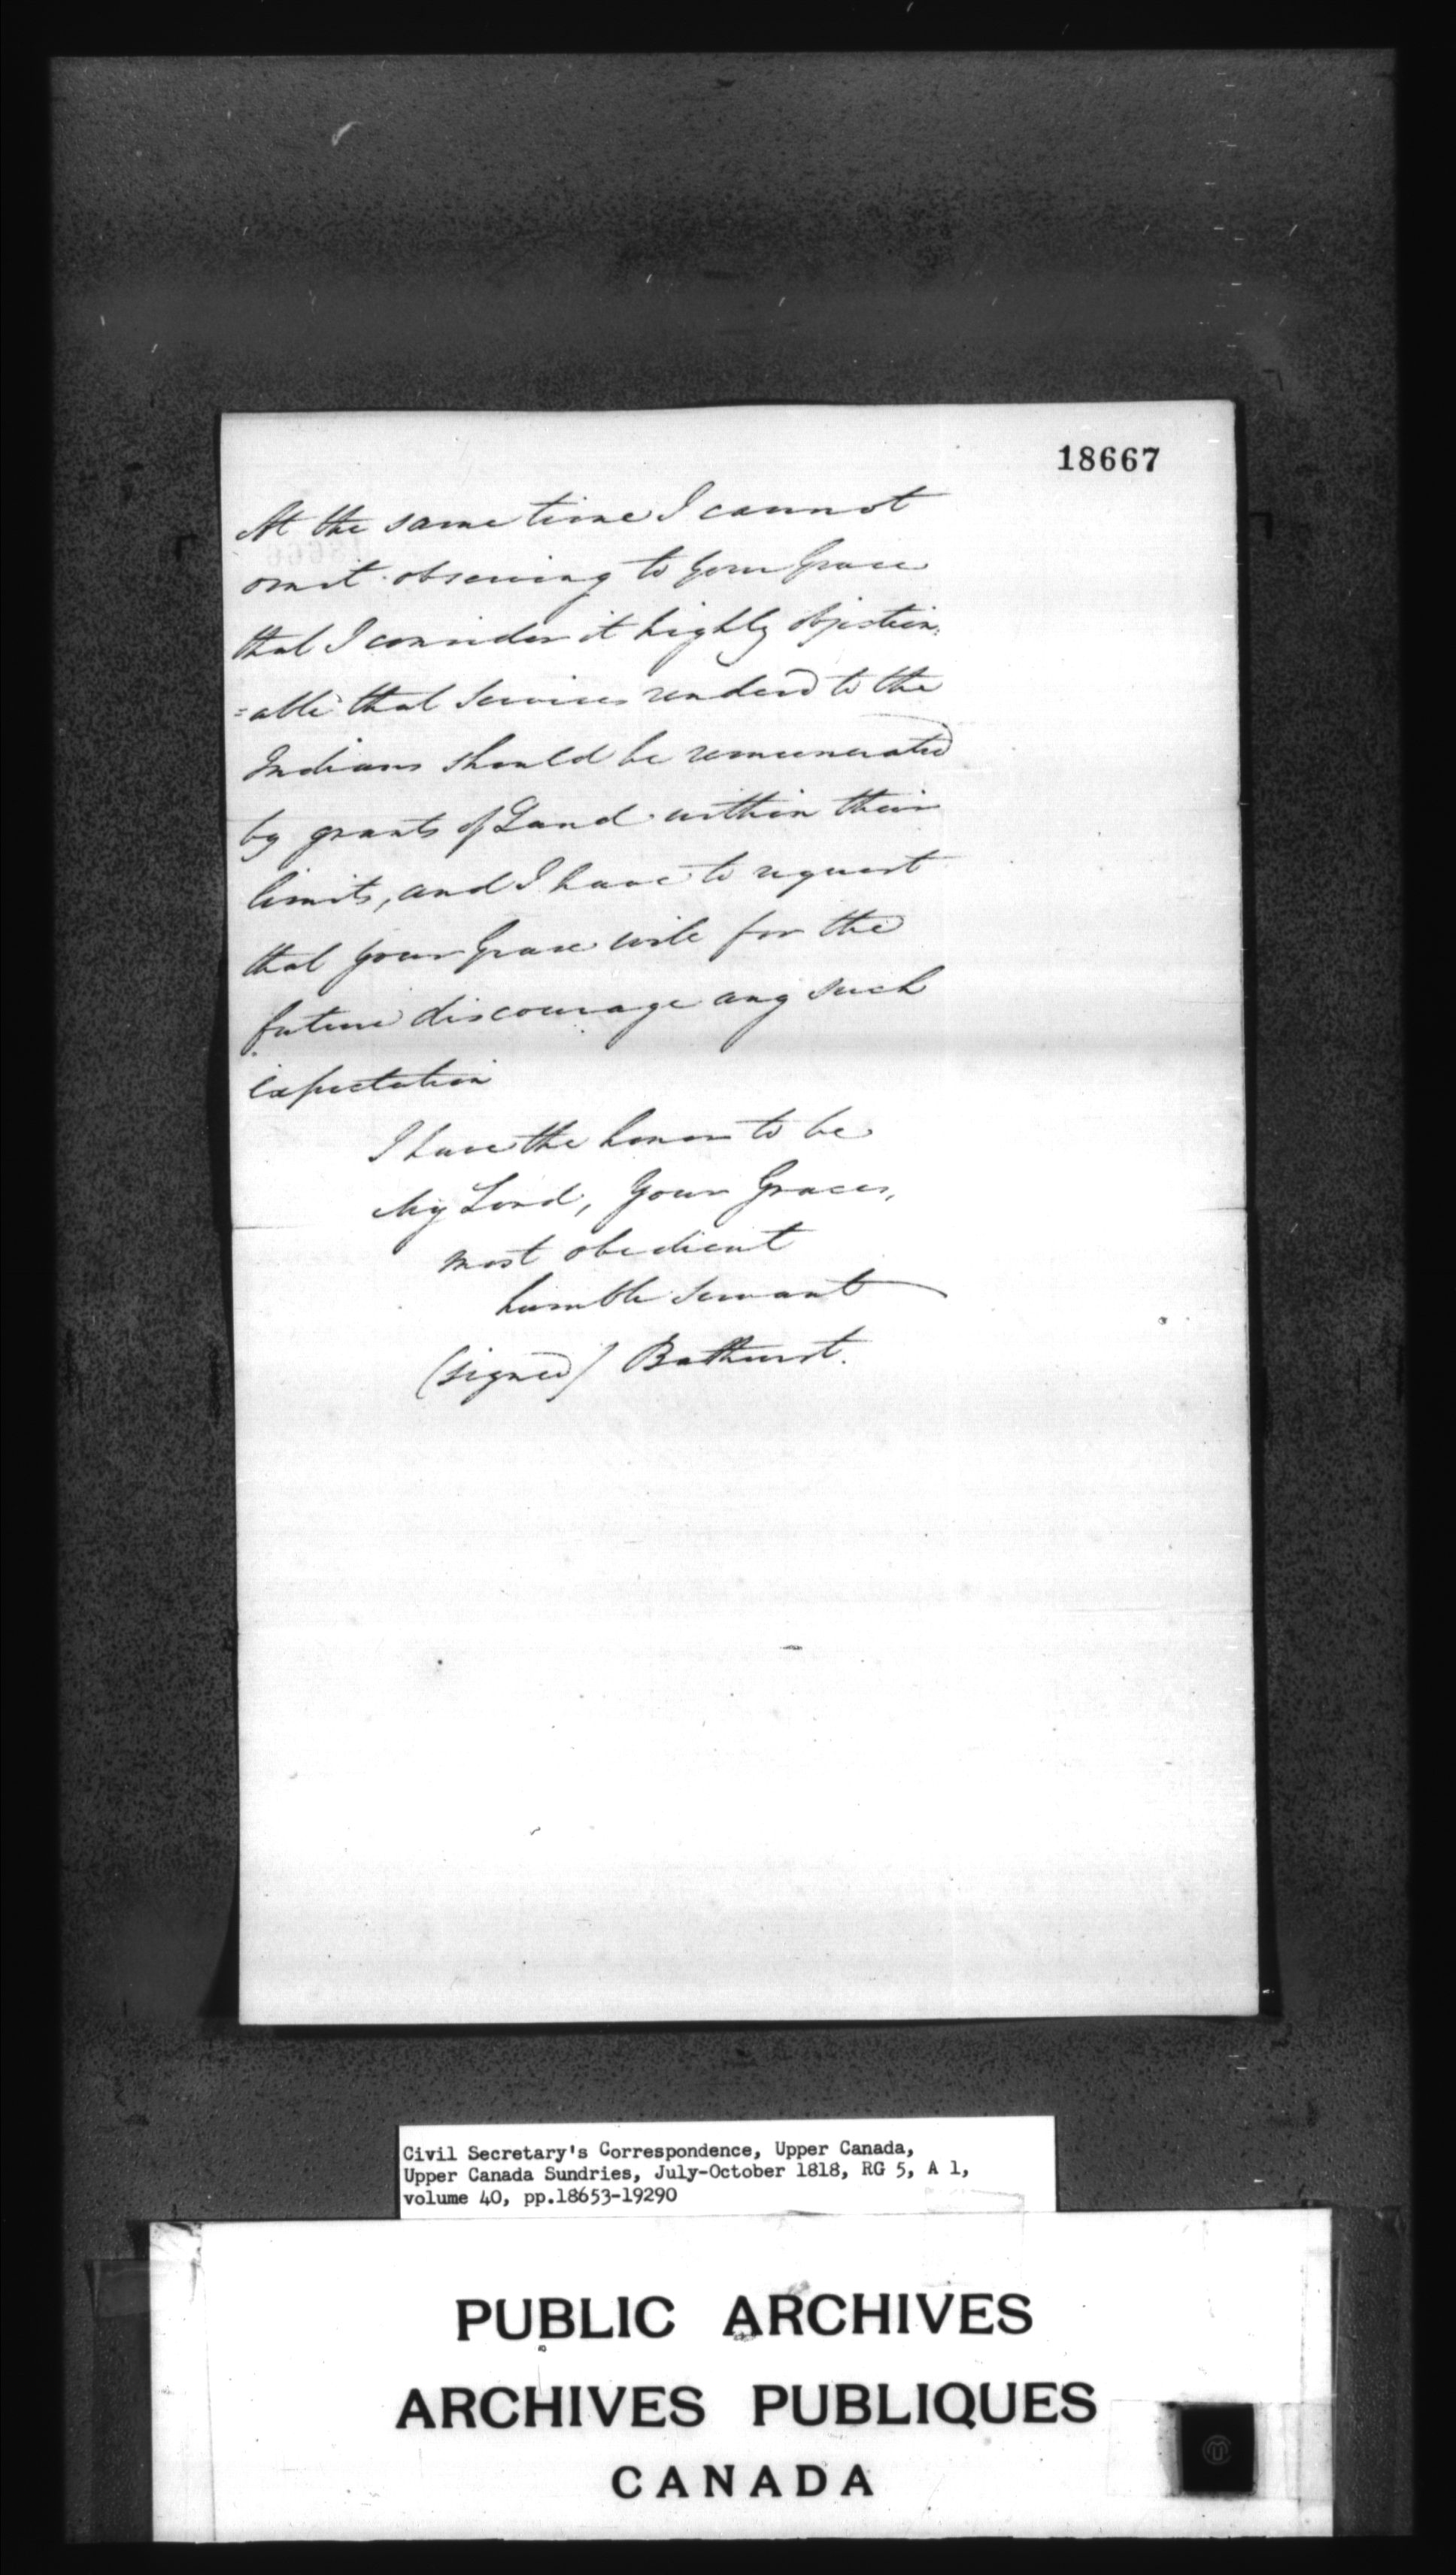 18667
At the same time I cannot
omit observing to your Grace
that I consider it highly objection=
=able that Services renderd to the
Indians should be remunerated
by grants of Land within their
limits, and I have to request
that your Grace will for the
future discourage any such
expectation
I have the honor to be
My Lord, Your Graces,
most obedient
humble Servant
(signed) Bathurst.
Civil Secretary's Correspondence, Upper Canada,
Upper Canada Sundries, July-October 1818, RG 5, A 1,
volume 40, pp.18653-19290
PUBLIC ARCHIVES
ARCHIVES PUBLIQUES
CANADA